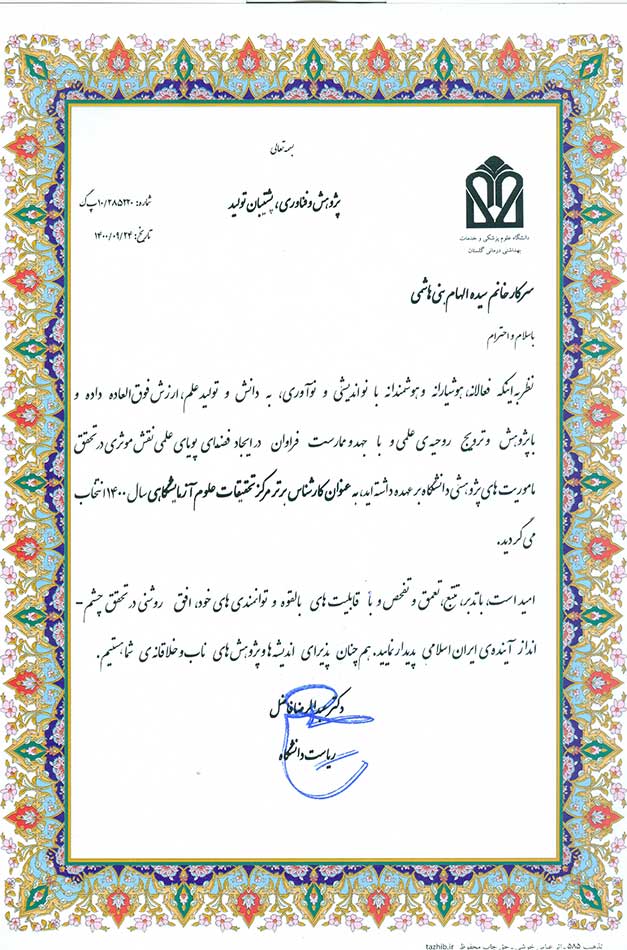 بسمه تعالی
پژوهش و فناوری، پشتیبان تولید
شماره: ۱۰/۲۸۵۲۲۰/پ گ
تاریخ: ۱۴۰۰/۰۹/۲۴
دانشگاه علوم پزشکی و خدمات
بهداشتی درمانی گلستان
سرکار خانم سیده الهام بنی هاشمی
باسلام و احترام
نظر به اینکه فعالانه، هوشیارانه و هوشمندانه با نواندیشی و نوآوری، به دانش و تولید علم، ارزش فوق العاده داده و
با پژوهش و ترویج روحیه ی علمی و با جهد و ممارست فراوان در ایجاد فضای پویای علمی نقش موثری در تحقق
ماموریت های پژوهشی دانشگاه بر عهده داشته اید، به عنوان کارشناس برتر مرکز تحقیقات علوم آزمایشگاهی سال ۱۴۰۰ انتخاب
می گردید.
امید است، با تدبر، تتبع، تعمق و تفحص و با قابلیت های بالقوه و توانمندی های خود، افق روشنی در تحقق چشم-
انداز آینده ی ایران اسلامی پدیدار نمایید. هم چنان پذیرای اندیشه ها و پژوهش های ناب و خلاقانه ی شما هستیم.
دکتر سیدعلیرضا فاضل
ریاست دانشگاه
tazhib.ir